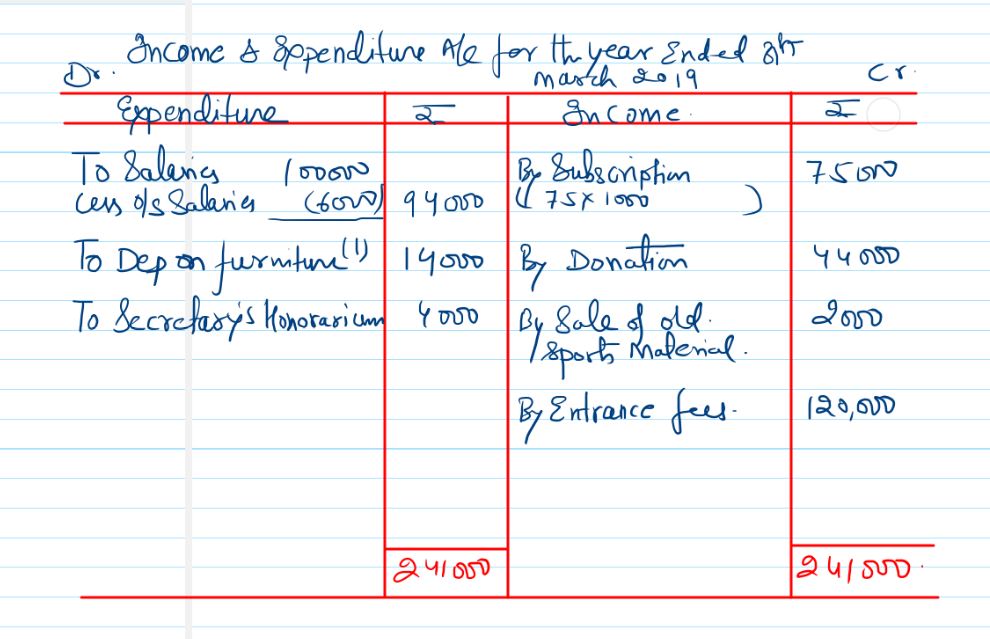 Income & Expenditure A/c for th year Ended 31st
March 2019
Dr. Cr.
Expenditure ₹ Income ₹
To Salaries 100000 By Subscription 75000
Less o/s Salaries (6000) 94000 ( 75 x 1000 )
To Dep on furniture (1) 14000 By Donation 44000
To Secretary's Honorarium 4000 By Sale of old. 2000
Sports Material.
By Entrance fees. 120,000
241000 241000.